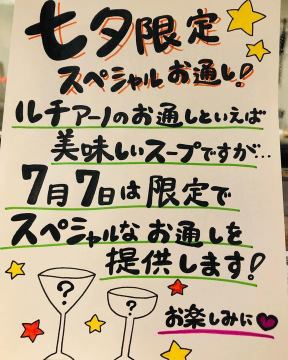 七夕限定
スペシャルお通し!
ルチアーノのお通しといえば
美味しいスープですが…
7月7日は限定で
スペシャルなお通しを
提供します!
? ?
お楽しみに